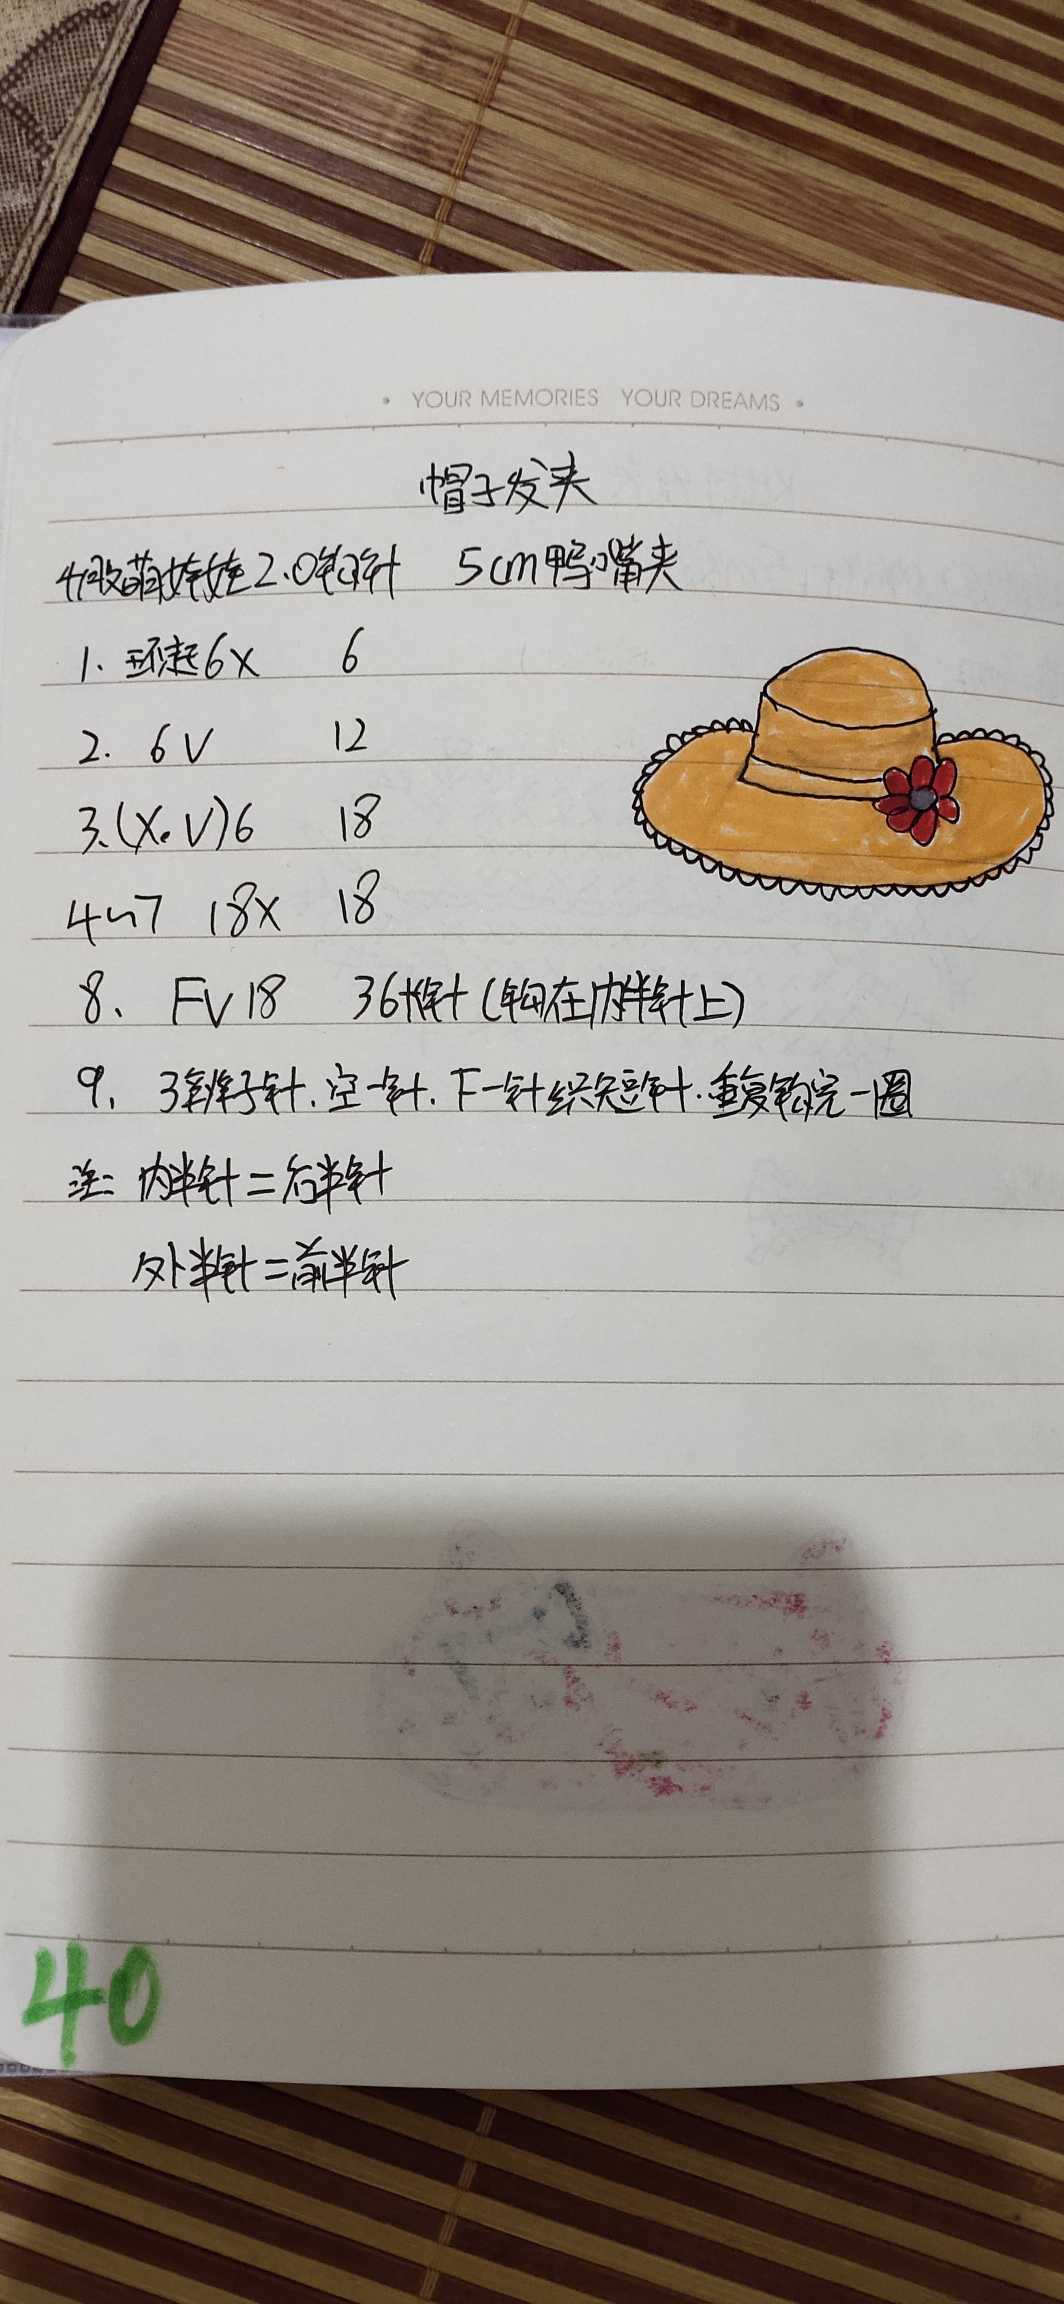 • YOUR MEMORIES YOUR DREAMS •
帽子发夹
4股萌娃娃2.0钩针 5cm鸭嘴夹
1、环起6X 6
2. 6V 12
3、(X.V)6 18
4~7 18X 18
8、 FV18 36长针(钩在内半针上)
9、3辫子针.空一针.下一针织短针.重复钩完一圈
注: 内半针=后半针
外半针=前半针
40